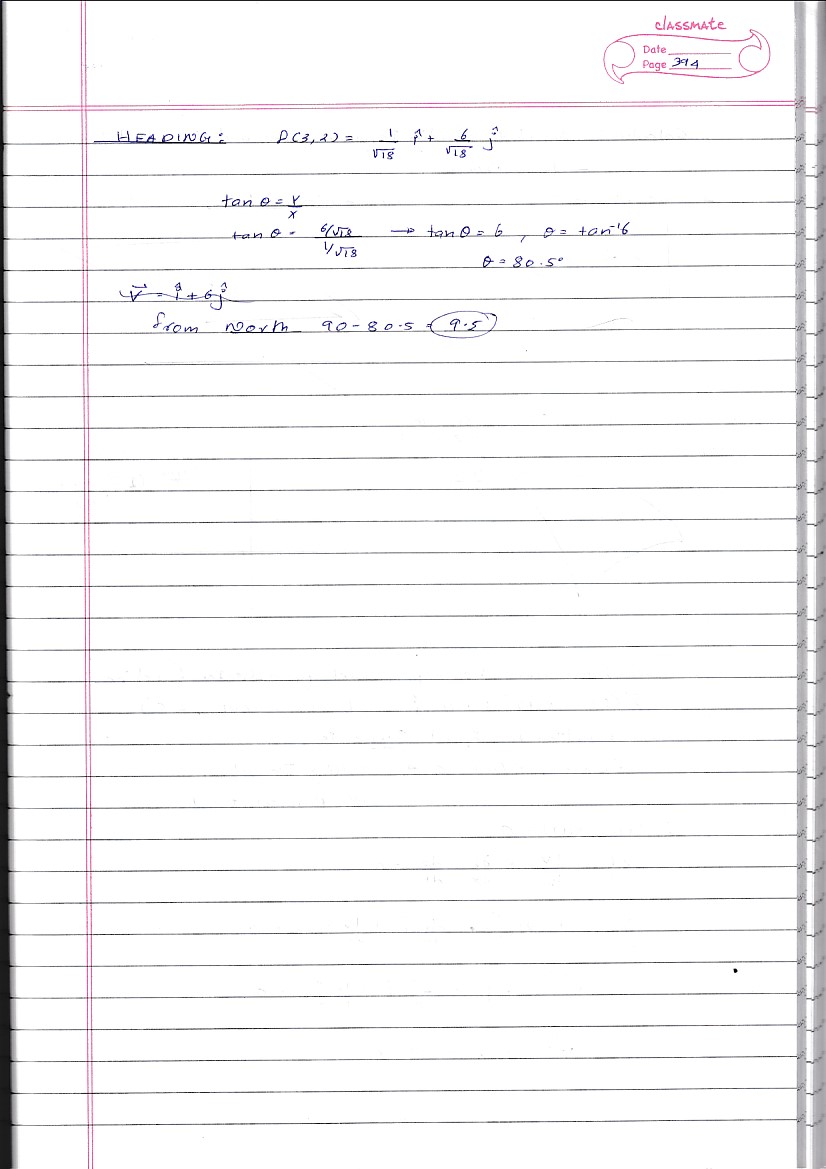 classmate
Date
Page 394
HEADING: P(3,2) = 1/√18 î + 6/√18 ĵ
tan θ = Y/X
tan θ = 6/√18 / 1/√18 → tan θ = 6 , θ = tan⁻¹6
θ = 80.5°
V⃗ = î + 6ĵ
from North 90 - 80.5 = 9.5